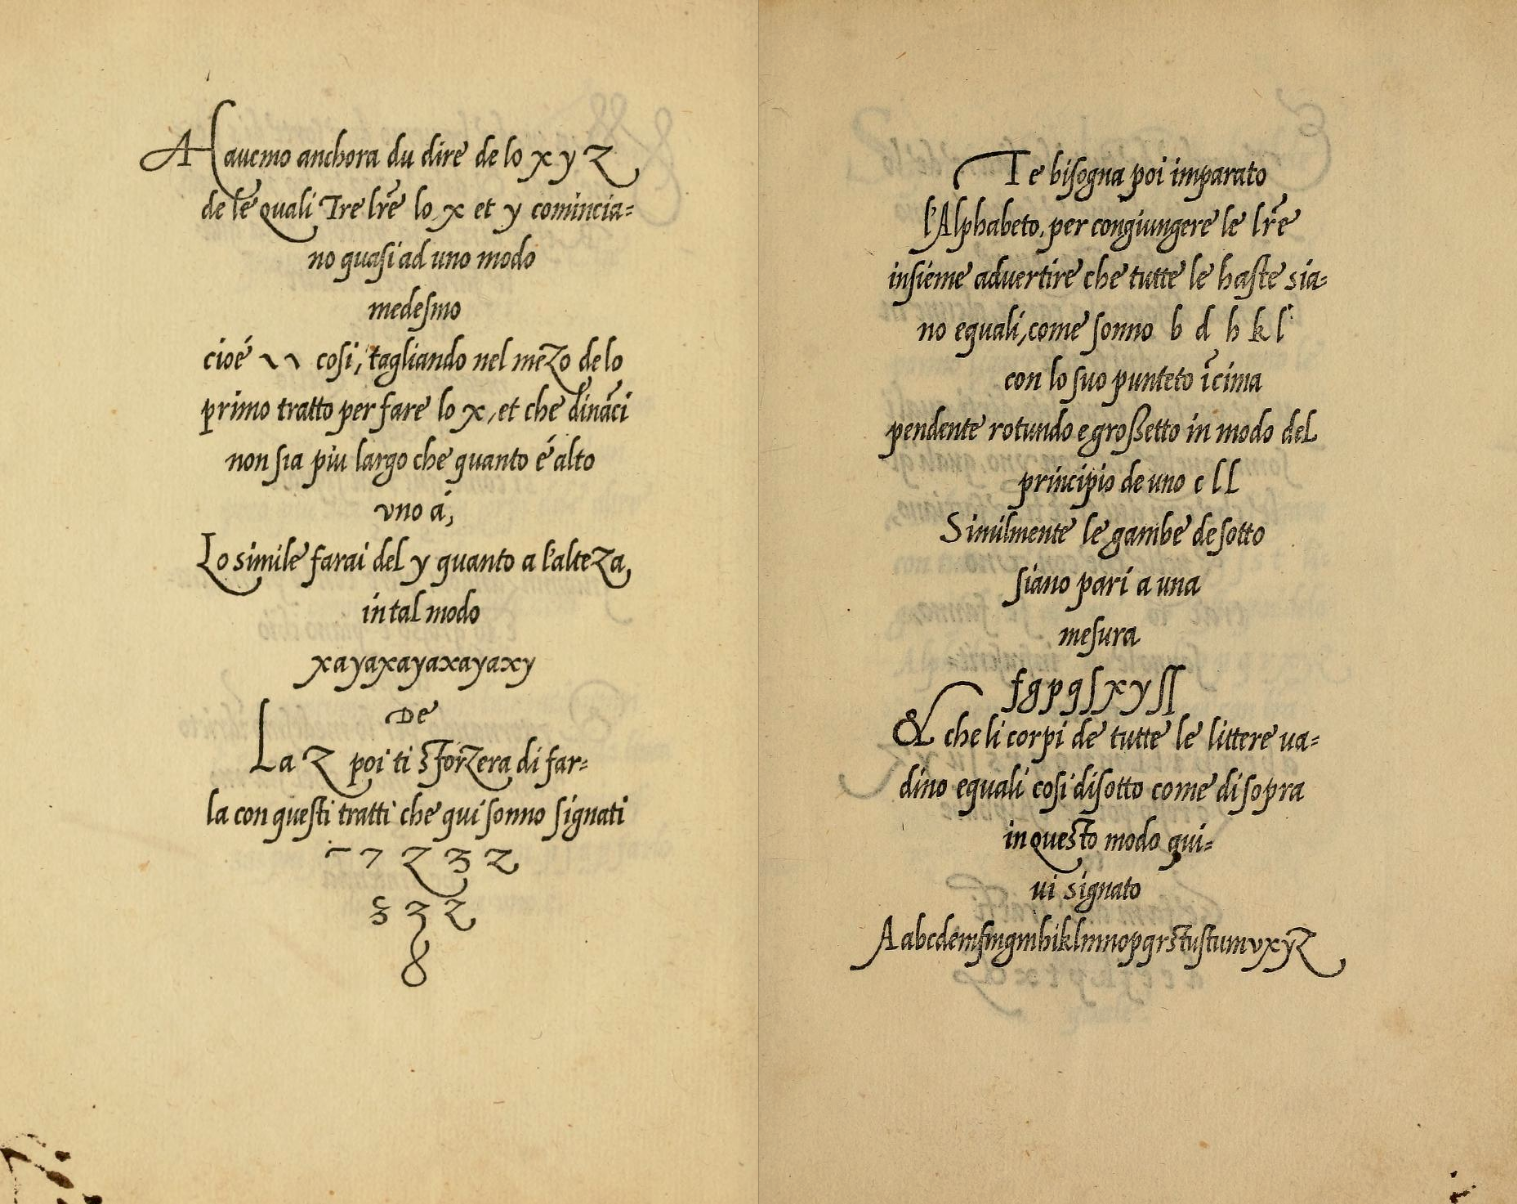 Hauemo anchora du dire de lo x y z
de le quali Tre lr̃e lo x et y comincia=
no quasi ad uno modo
medesmo
cioé cosi, tagliando nel mezo de lo
primo tratto per fare lo x, et che dinãci
non sia piu largo che quanto é alto
vno á,
Lo simile farai del y quanto a l'alteza,
in tal modo
xayaxayaxayaxy
De
La z poi ti sforzera di far=
la con questi tratti che qui sonno signati
z 3 z
Te bisogna poi imparato
l'Alphabeto, per congiungere le lr̃e
insieme advertire che tutte le haste sia=
no equali, come sonno b d h k l
con lo suo punteto ĩ cima
pendente rotundo e großetto in modo del
principio de uno c l l
Similmente le gambe de sotto
siano pari a una
mesura
f g p q ſ x y ſſ
& che li corpi de tutte le littere ua=
dino equali cosi disotto come di sopra
in questo modo qui=
ui signato